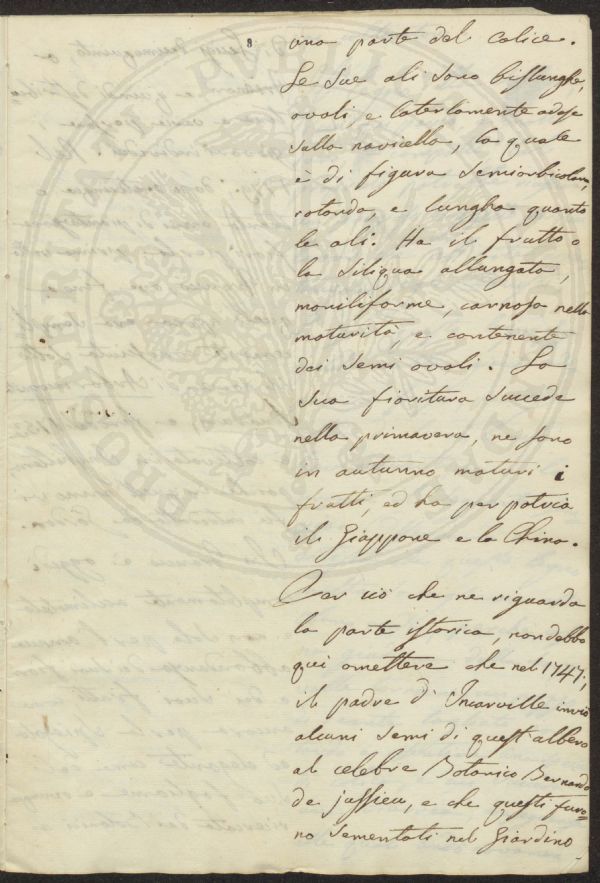 8
una parte del calice.
Le sue ali sono bislunghe,
ovali, e laterlamente adese
sulla navicella, la quale
è di figura semiorbicolare,
rotonda, e lungha quanto
le ali. Ha il frutto o
la siliqua allungata,
moniliforme, carnosa nella
maturità, e contenente
dai semi ovali. La
sua fioritura succede
nella primavera, ne sono
in autunno maturi i
frutti, ed ha per patria
il Giappone e la China.
Per ciò che ne riguarda
la parte istorica, non debbo
qui omettere che nel 1747.,
il padre d'Incarville inviò
alcuni semi di quest'albero
al celebre Botanico Bernardo
de jussieu, e che questi furo=
no sementati nel Giardino